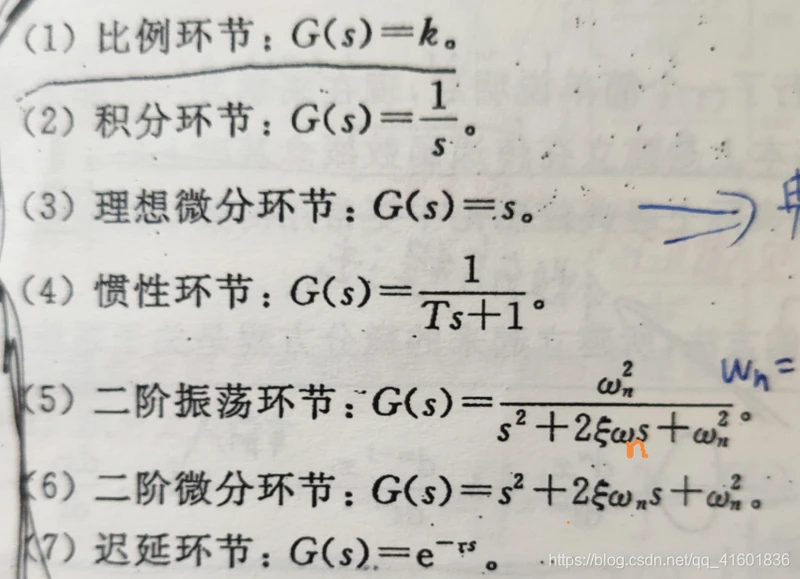 (1) 比例环节：G(s)=k。
(2) 积分环节：G(s)=1/s。
(3) 理想微分环节：G(s)=s。
(4) 惯性环节：G(s)=1/(Ts+1)。
(5) 二阶振荡环节：G(s)=ωₙ²/(s²+2ξωₙs+ωₙ²)。 Wn=
(6) 二阶微分环节：G(s)=s²+2ξωₙs+ωₙ²。
(7) 迟延环节：G(s)=e^(-τs)。
https://blog.csdn.net/qq_41601836